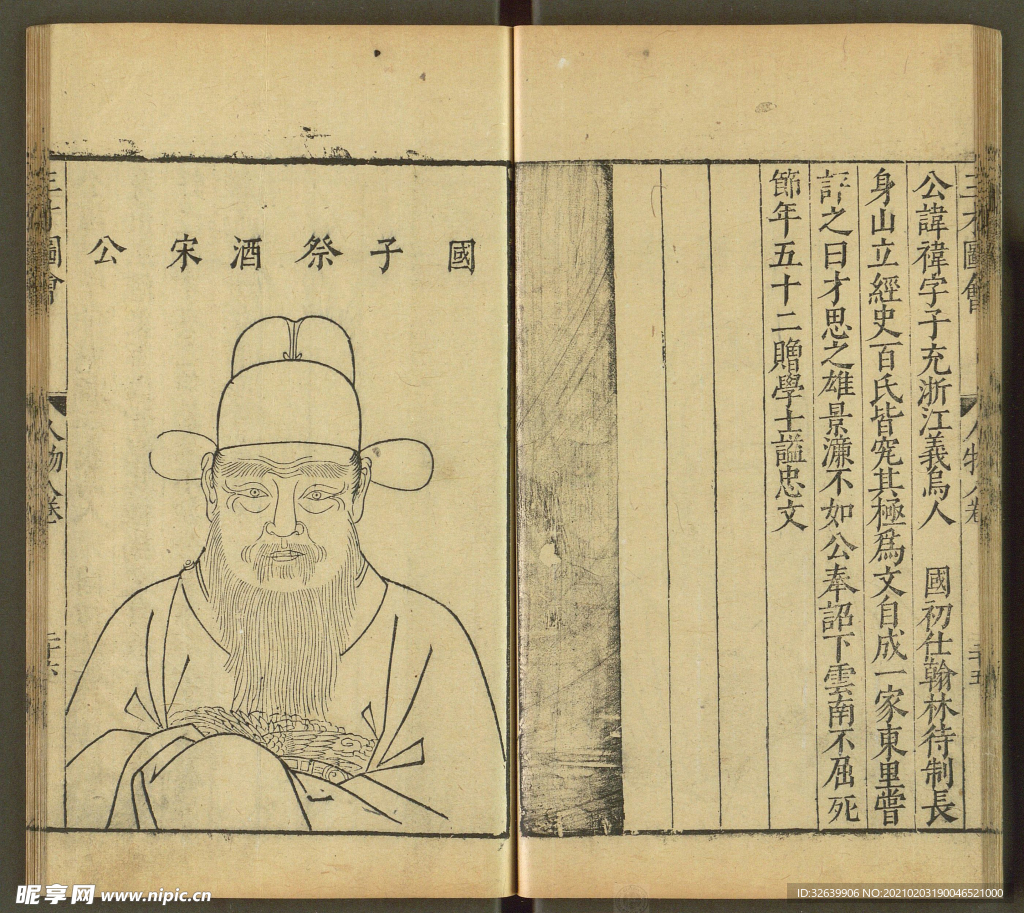 三才圖會
人物八卷
二十五
公諱禕字子充浙江義烏人 國初仕翰林待制長
身山立經史百氏皆究其極爲文自成一家東里嘗
評之曰才思之雄景濂不如公奉詔下雲南不屈死
節年五十二贈學士謚忠文
國子祭酒宋公
三才圖會
人物八卷
二十六
昵享网 www.nipic.cn
ID:32639906 NO:20210203190046521000